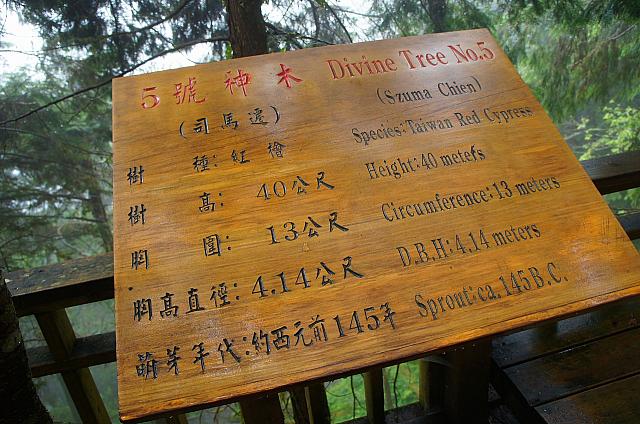 5號神木 Divine Tree No.5
(司馬遷) (Szuma Chien)
樹種:紅檜 Species:Taiwan Red Cypress
樹高: 40公尺 Height:40 metefs
胸圍: 13公尺 Circumference:13 meters
胸高直徑:4.14公尺 D.B.H:4.14 meters
萌芽年代:約西元前145年 Sprout:ca.145B.C.